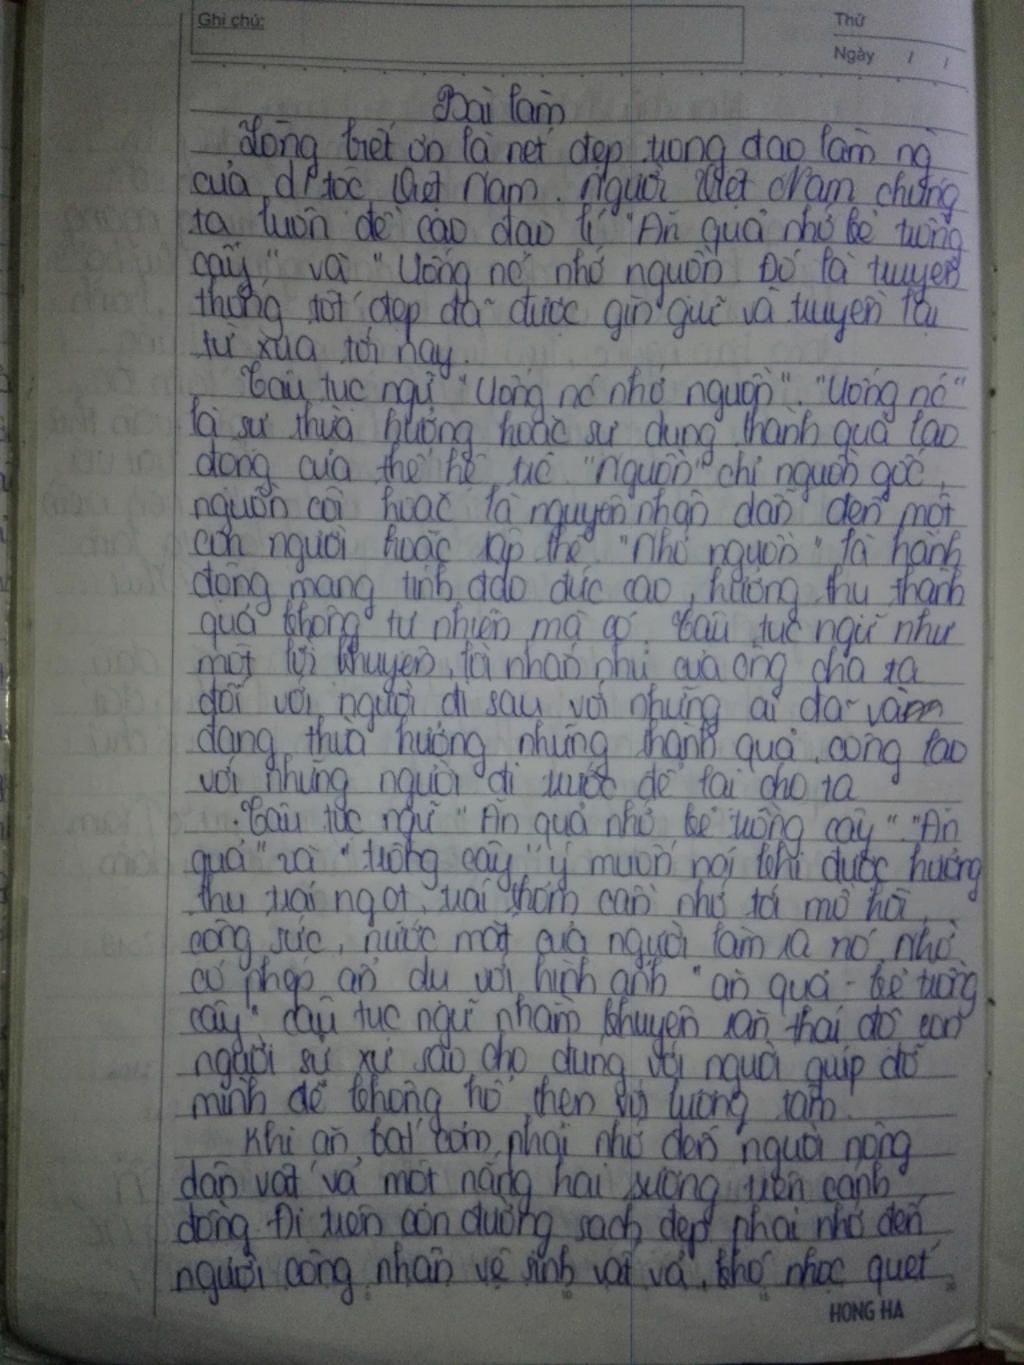 Ghi chú:
Thứ
Ngày / /
Bài làm
Lòng biết ơn là nét đẹp trong đạo làm ng
của d/ tộc Việt Nam. Người Việt Nam chúng
ta luôn đề cao đạo lí "Ăn quả nhớ kẻ trồng
cây" và "Uống nc nhớ nguồn. Đó là truyền
thống tốt đẹp đã được gìn giữ và truyền lại
từ xưa tới nay.
Câu tục ngữ "Uống nc nhớ nguồn". "Uống nc"
là sự thừa hưởng hoặc sử dụng thành quả lao
động của thế hệ trc "nguồn" chỉ nguồn gốc,
nguồn cội hoặc là nguyên nhân dẫn đến một
con người hoặc tập thể "nhớ nguồn" là hành
động mang tính đạo đức cao, hưởng thụ thành
quả không tự nhiên mà có. Câu tục ngữ như
một lời khuyên, lời nhắn nhủ của ông cha ta
đối với người đi sau với những ai đã và
đang thừa hưởng những thành quả, công lao
với những người đi trước để lại cho ta
Câu tục ngữ "Ăn quả nhớ kẻ trồng cây". "Ăn
quả" và "trồng cây" ý muốn nói khi được hưởng
thụ trái ngọt, trái thơm cần nhớ tới mồ hôi,
công sức, nước mắt của người làm ra nó, nhờ
có phép ẩn dụ với hình ảnh "ăn quả - kẻ trồng
cây" câu tục ngữ nhằm khuyên răn thái độ con
người sử xự sao cho đúng với người giúp đỡ
mình để không hổ thẹn với lương tâm.
Khi ăn bát cơm, phải nhớ đến người nông
dân vất vả một nắng hai sương trên cánh
đồng. Đi trên con đường sạch đẹp phải nhớ đến
người công nhân vệ sinh vất vả, khó nhọc quét
HONG HA